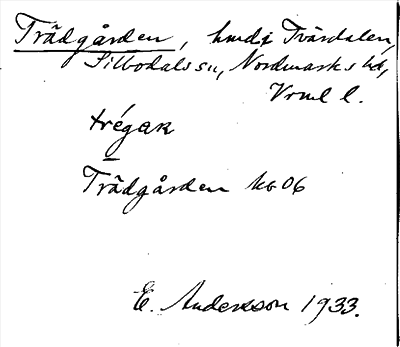 Trädgården, hmd i Tvärdalen,
Silbodals sn, Nordmarks hd,
Vrml l.
trégaṟ
Trädgården kb 06
E. Andersson 1933.